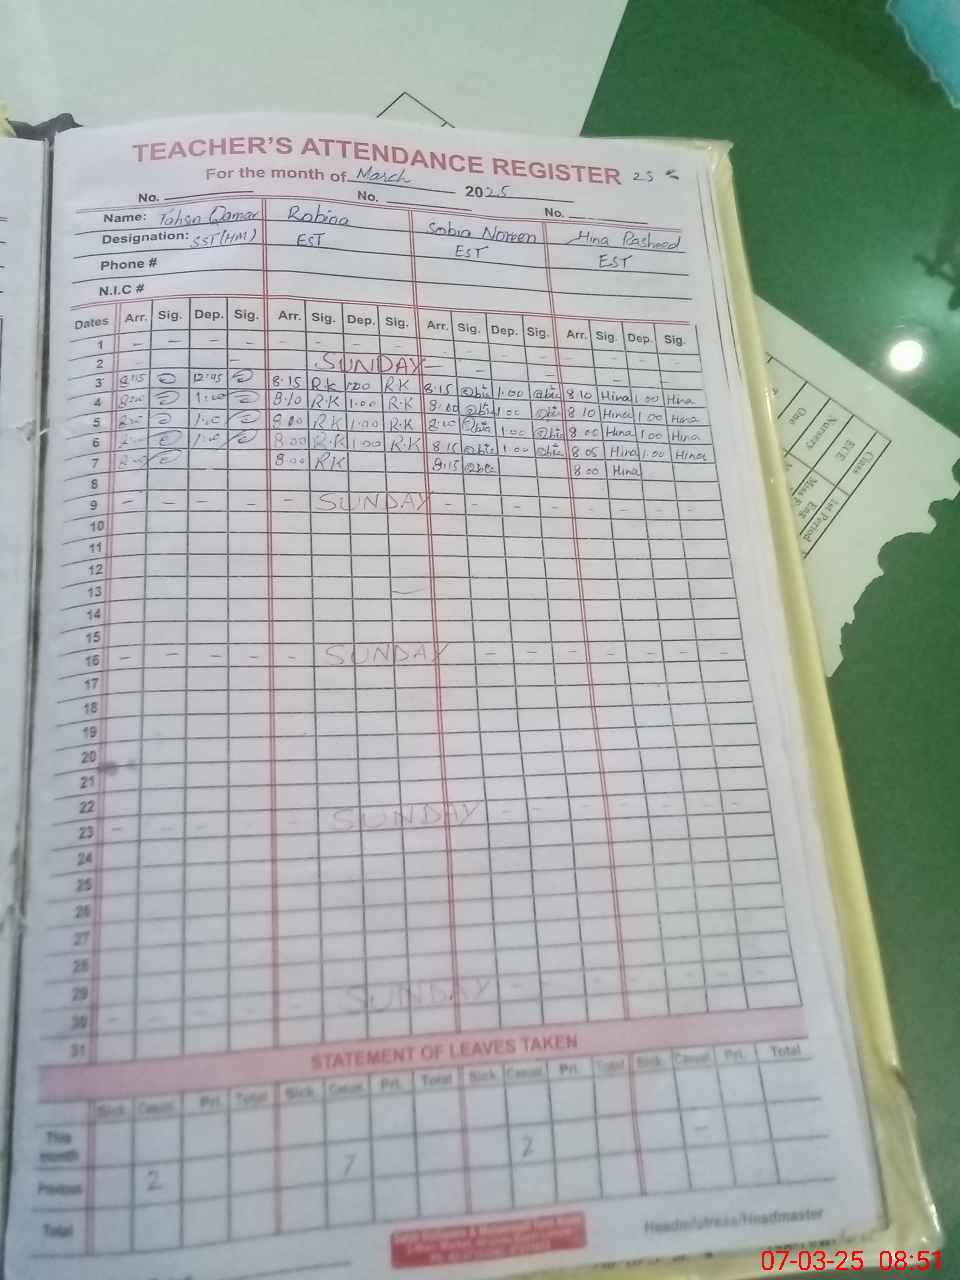 TEACHER'S ATTENDANCE REGISTER 25
For the month of March 2025
No. No. No.
Name: Tahsin Qamar Robina Sobia Noreen Hina Rasheed
Designation: SST(HM) EST EST EST
Phone #
N.I.C #
Dates Arr. Sig. Dep. Sig. Arr. Sig. Dep. Sig. Arr. Sig. Dep. Sig. Arr. Sig. Dep. Sig.
1 - - - - - - - -
2 SUNDAY
3 8:15 12:45 8.15 RK 1.00 RK 8.15 1.00 8 10 Hina 1 00 Hina
4 8:00 1:00 8.10 R.K 1.00 R.K 8.00 1.00 8 10 Hina 1 00 Hina
5 1:00 8.00 RK 1.00 R.K 8:00 1.00 8 00 Hina 1 00 Hina
6 1:00 8.00 R.K 1.00 R.K 8.15 1.00 8 05 Hina 1.00 Hina
7 8.00 RK 8:15 8 00 Hina
8
9 - - - - SUNDAY - - - - - - -
10
11
12
13
14
15
16 - - - - - SUNDAY - - - - - - -
17
18
19
20
21
22
23 - - - - - SUNDAY - - - - - - -
24
25
26
27
28
29
30 - - - - - SUNDAY - - - - - - -
31
STATEMENT OF LEAVES TAKEN
Sick Casual Pri. Total Sick Casual Pri. Total Sick Casual Pri. Total Sick Casual Pri. Total
This month
Previous 2 7 2 -
Total
Headmistress/Headmaster
Class
ECE
Nursery
One
1st Period
Eng
07-03-25 08:51